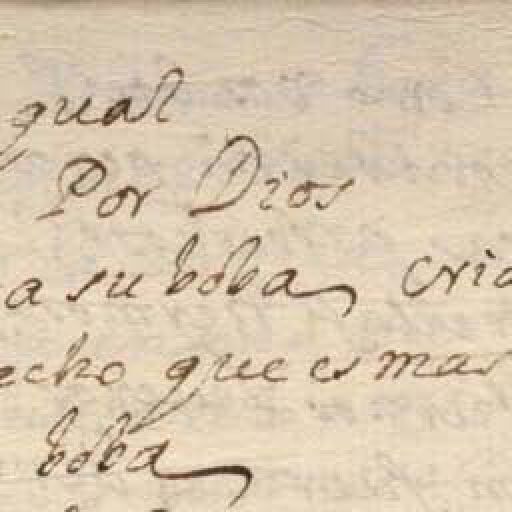 gual
Por Dios
a su boba cria
echo que es mas
boba